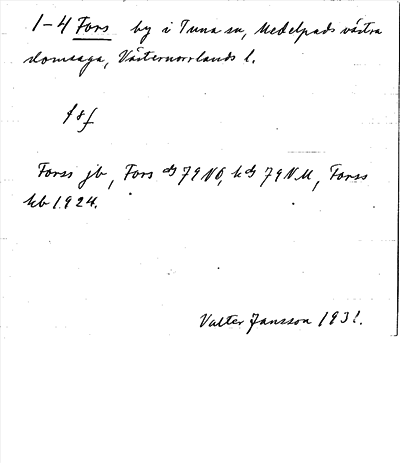 1-4 Fors by i Tuna sn, Medelpads västra
domsaga, Västernorrlands l.
fsf
Forss jb, Fors ds 79 NO, k ds 79 NU, Forss
kb 1924.
Valter Jansson 1931.